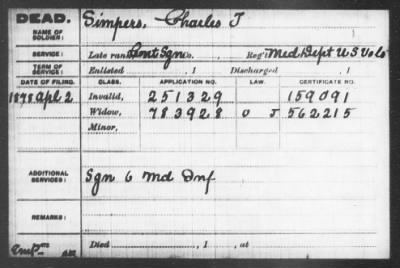 DEAD.
NAME OF SOLDIER: Simpers, Charles T
SERVICE: Late rank, Cont Sgn Co. Reg't Med Dept U S Vols
TERM OF SERVICE: Enlisted , 1 Discharged , 1
DATE OF FILING. CLASS. APPLICATION NO. LAW. CERTIFICATE NO.
1878 Apl 2 Invalid, 251329 159091
Widow, 783928 O J 562215
Minor,
ADDITIONAL SERVICES: Sgn 6 Md Inf
REMARKS:
Died , 1 , at